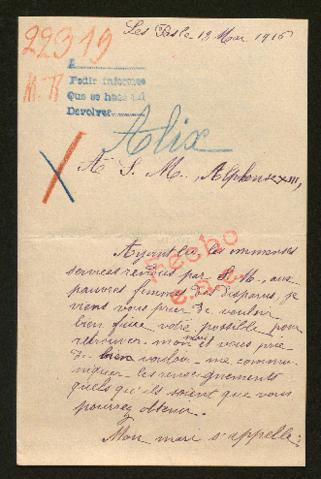 22319
Les 13 Mai 1916
A
Pedir informes
Que se hace
Devolver
Alix
A S. M. Alphonse XIII,
Hecho
Ayant lu les immenses
services rendus par S. M. aux
pauvres femmes des disparus, je
viens vous prier de vouloir
bien faire votre possible pour
retrouver mon mari et vous prie
de bien vouloir me commu-
niquer les renseignements
quels qu'ils soient que vous
pourrez obtenir.
Mon mari s'appelle: